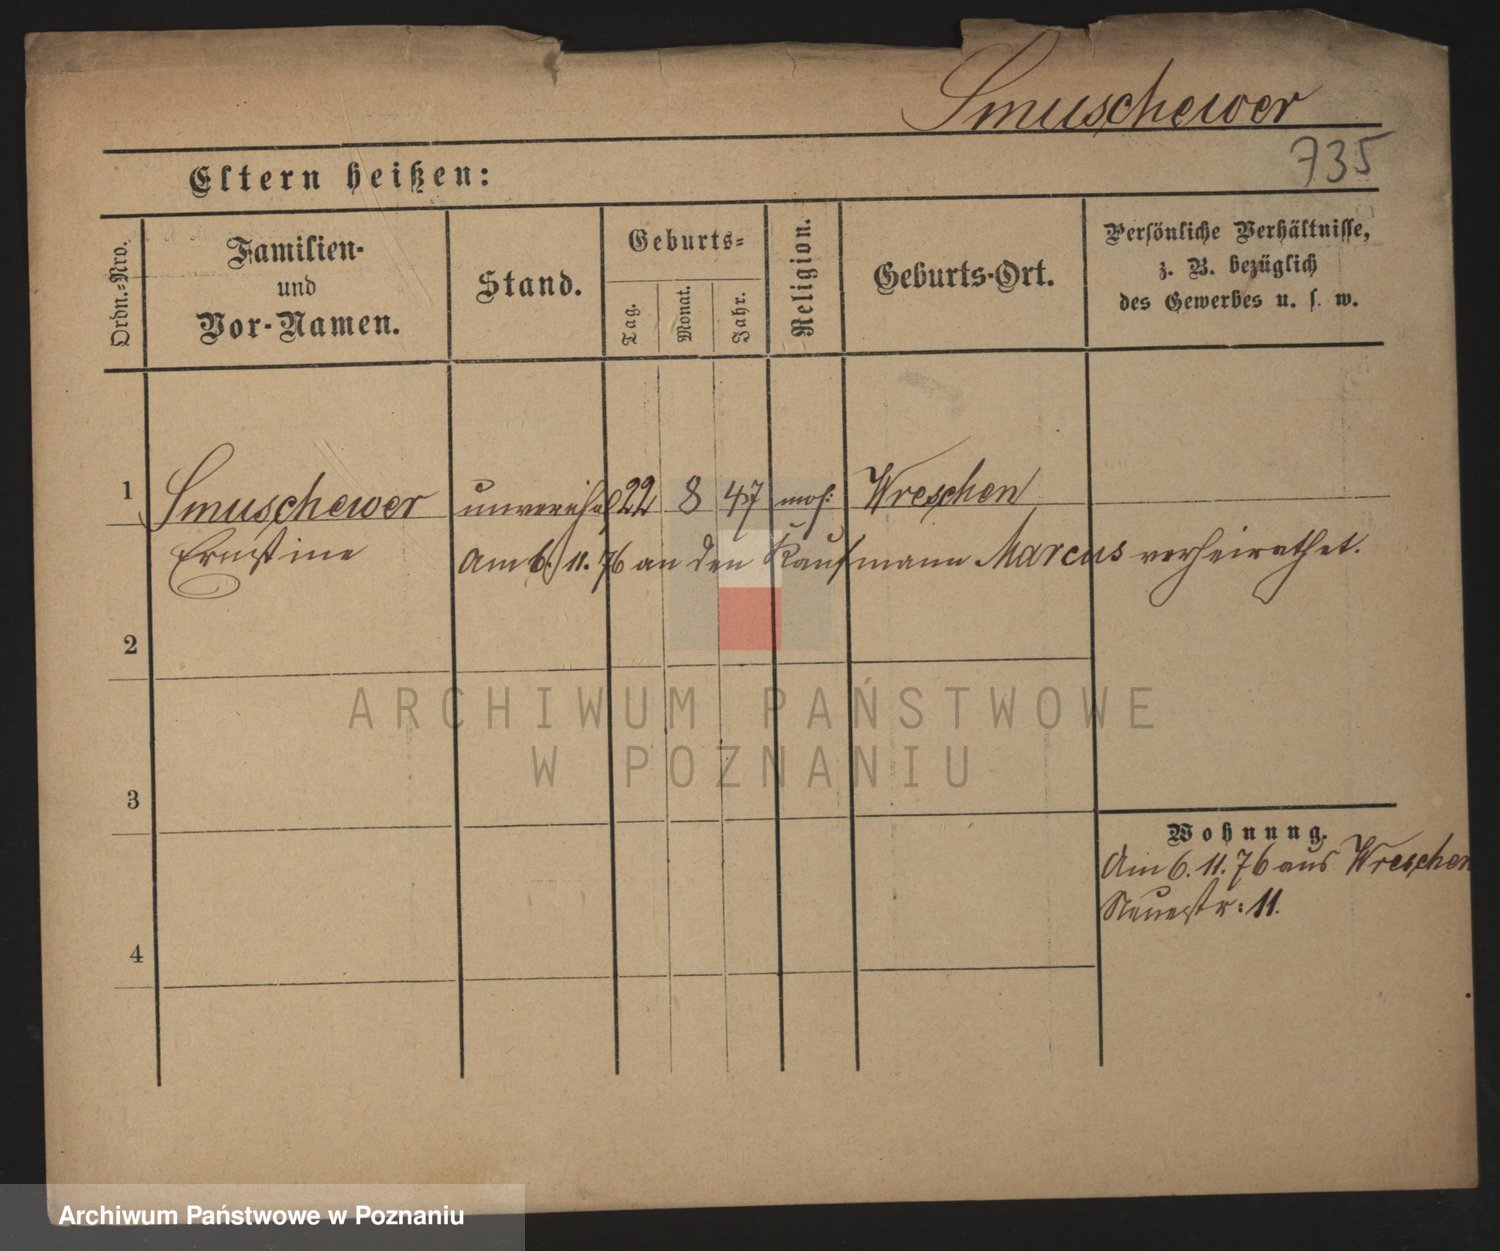 Smuschewer
735
Eltern heißen:
Ordn.-Nro.
Familien-
und
Vor-Namen.
Stand.
Geburts-
Tag.
Monat.
Jahr.
Religion.
Geburts-Ort.
Persönliche Verhältnisse,
z. B. bezüglich
des Gewerbes u. s. w.
1 Smuschewer unvereh. 22 8 47 mos: Wreschen
Ernstine Am 6. 11. 76 an den Kaufmann Marcus verheirathet.
2
ARCHIWUM PAŃSTWOWE
W POZNANIU
3
Wohnung.
Am 6. 11. 76 aus Wreschen
Neuestr: 11.
4
Archiwum Państwowe w Poznaniu